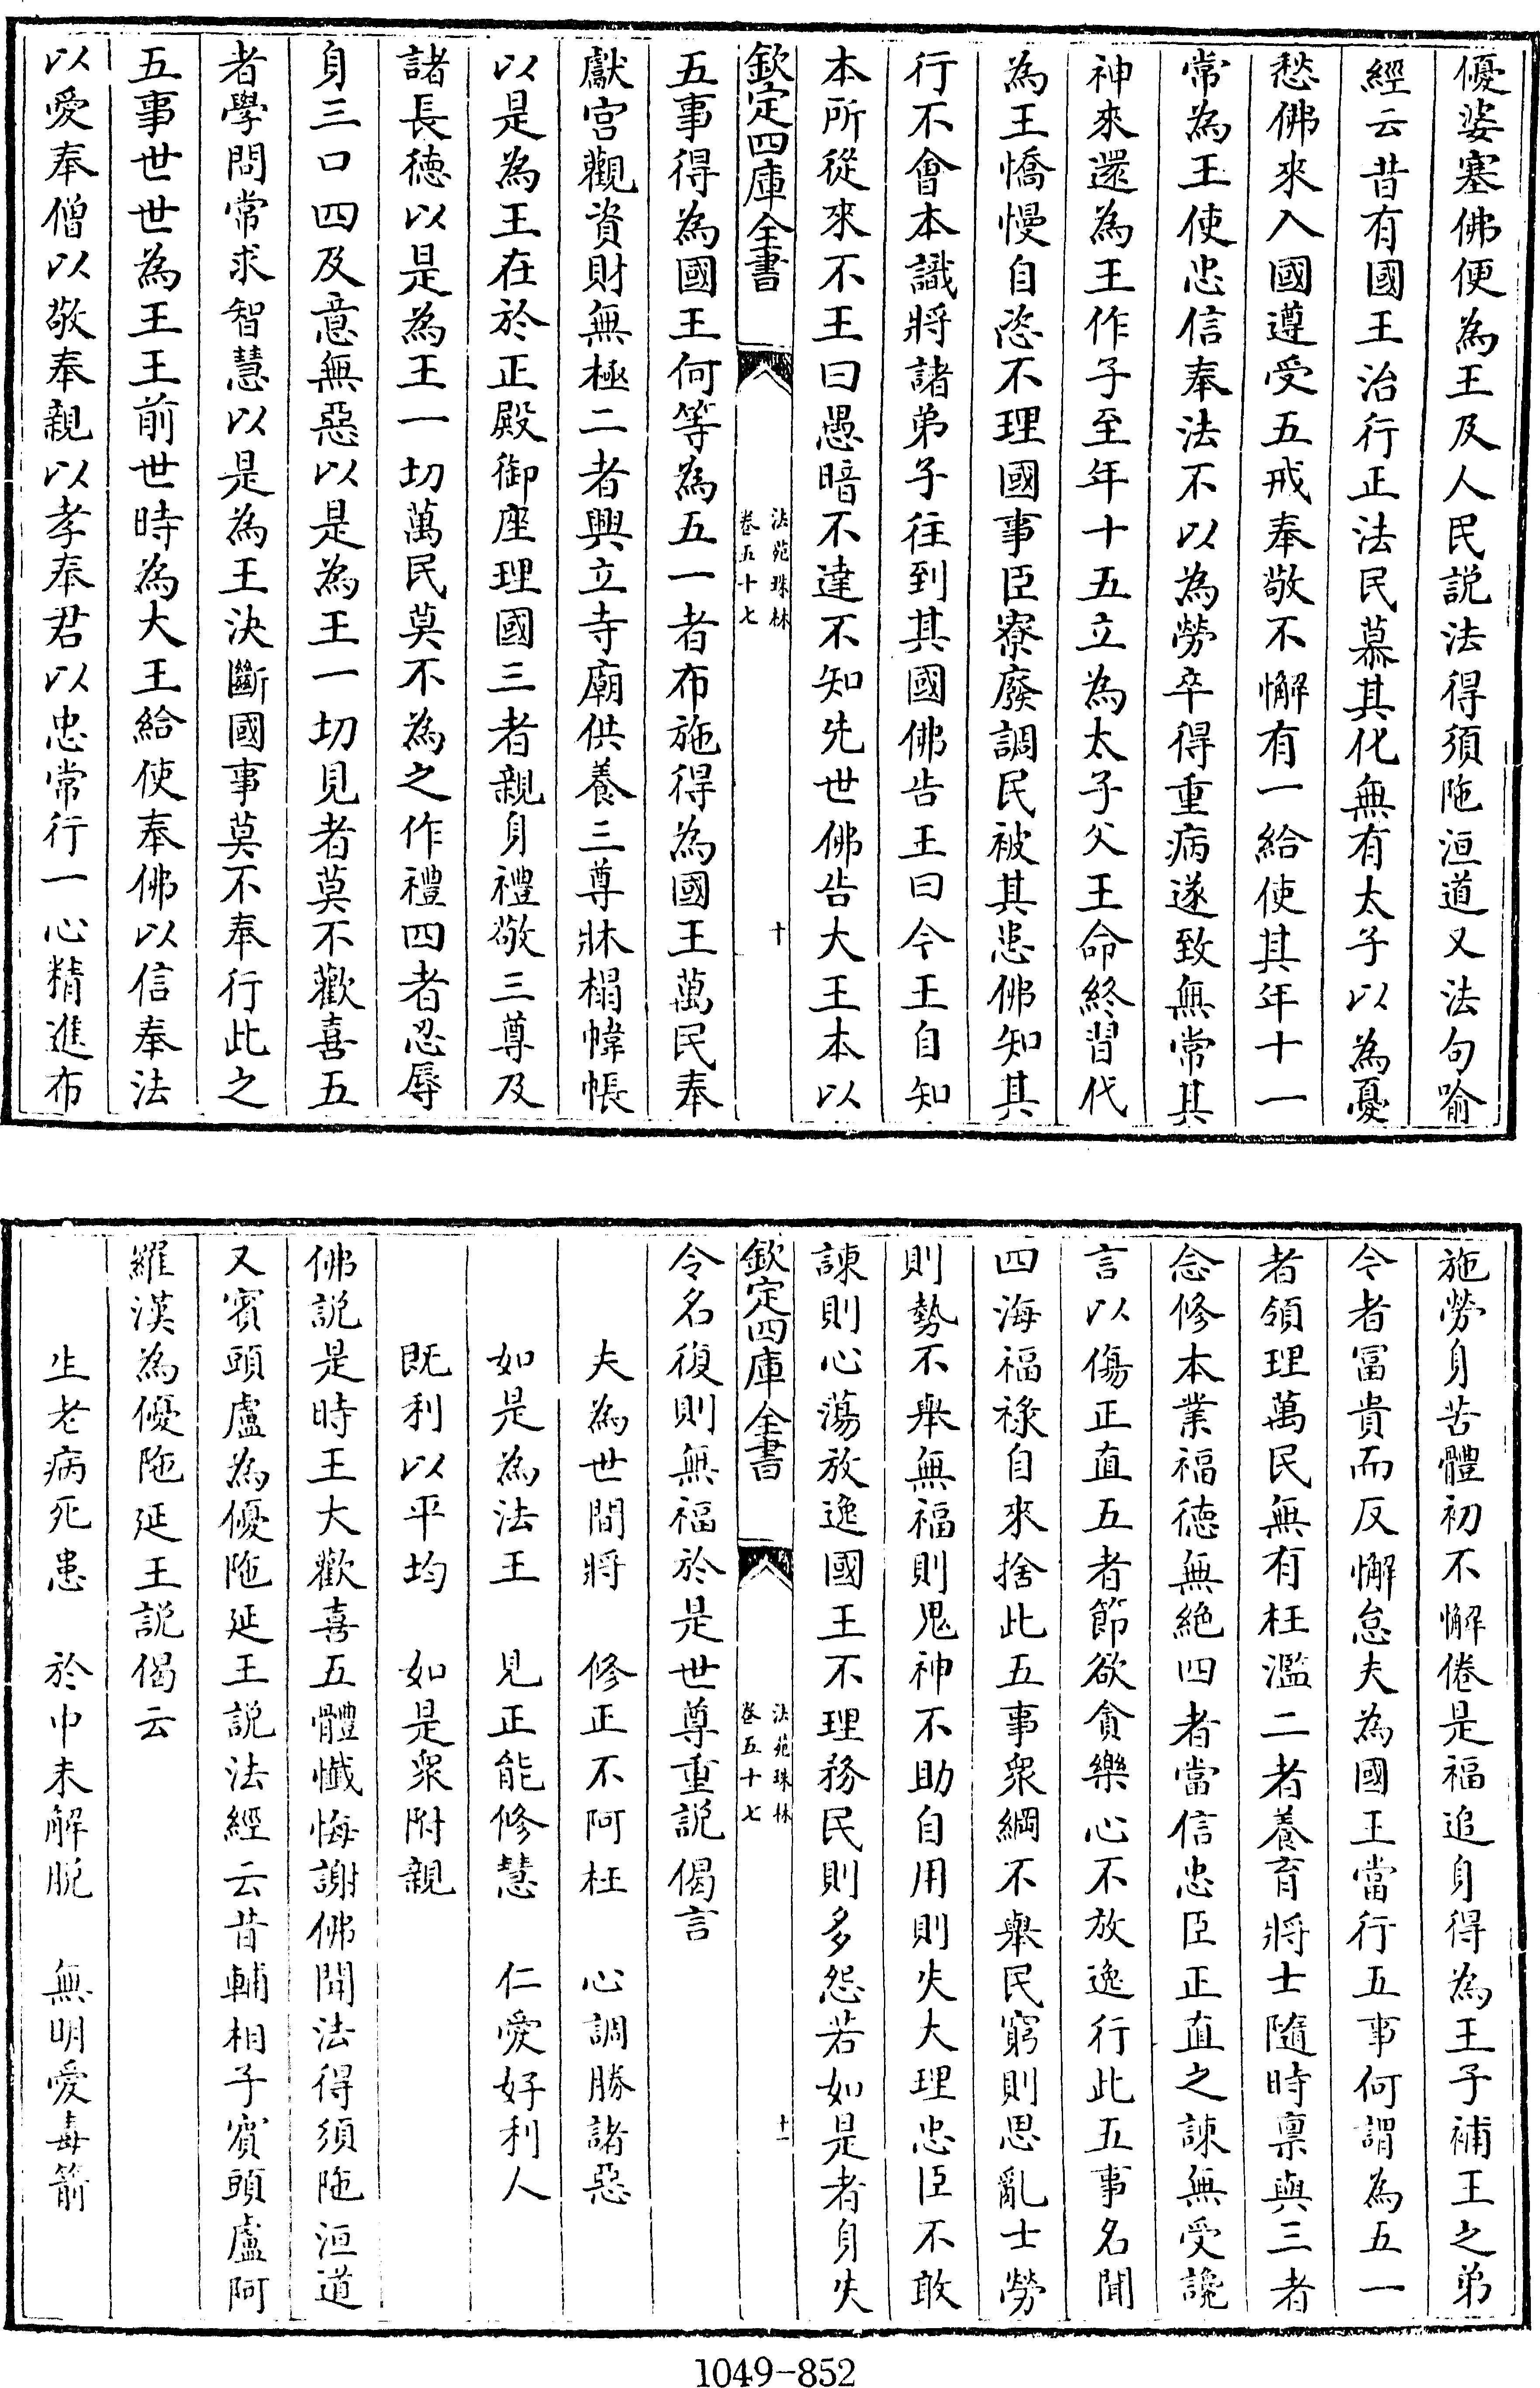 優婆塞佛便為王及人民説法得須陁洹道又法句喻
經云昔有國王治行正法民慕其化無有太子以為憂
愁佛來入國遵受五戒奉敬不懈有一給使其年十一
常為王使忠信奉法不以為勞卒得重病遂致無常其
神來還為王作子至年十五立為太子父王命終習代
為王憍慢自恣不理國事臣寮廢調民被其患佛知其
行不會本識將諸弟子往到其國佛告王曰今王自知
本所從來不王曰愚暗不達不知先世佛告大王本以
欽定四庫全書
法苑珠林
卷五十七
十
五事得為國王何等為五一者布施得為國王萬民奉
獻宫觀資財無極二者興立寺廟供養三尊牀榻幃帳
以是為王在於正殿御座理國三者親身禮敬三尊及
諸長徳以是為王一切萬民莫不為之作禮四者忍辱
身三口四及意無惡以是為王一切見者莫不歡喜五
者學問常求智慧以是為王決斷國事莫不奉行此之
五事世世為王王前世時為大王給使奉佛以信奉法
以愛奉僧以敬奉親以孝奉君以忠常行一心精進布
施勞身苦體初不懈倦是福追身得為王子補王之弟
今者冨貴而反懈怠夫為國王當行五事何謂為五一
者領理萬民無有枉濫二者養育將士隨時禀與三者
念修本業福徳無絶四者當信忠臣正直之諫無受讒
言以傷正直五者節欲貪樂心不放逸行此五事名聞
四海福祿自來捨此五事衆綱不舉民窮則思亂士勞
則勢不舉無福則鬼神不助自用則失大理忠臣不敢
諫則心蕩放逸國王不理務民則多怨若如是者身失
欽定四庫全書
法苑珠林
卷五十七
十一
令名復則無福於是世尊重説偈言
夫為世間將　修正不阿枉　心調勝諸惡
如是為法王　見正能修慧　仁愛好利人
既利以平均　如是衆附親
佛説是時王大歡喜五體懺悔謝佛聞法得須陁洹道
又賓頭盧為優陁延王説法經云昔輔相子賓頭盧阿
羅漢為優陁延王説偈云
生老病死患　於中未解脱　無明愛毒箭
1049-852